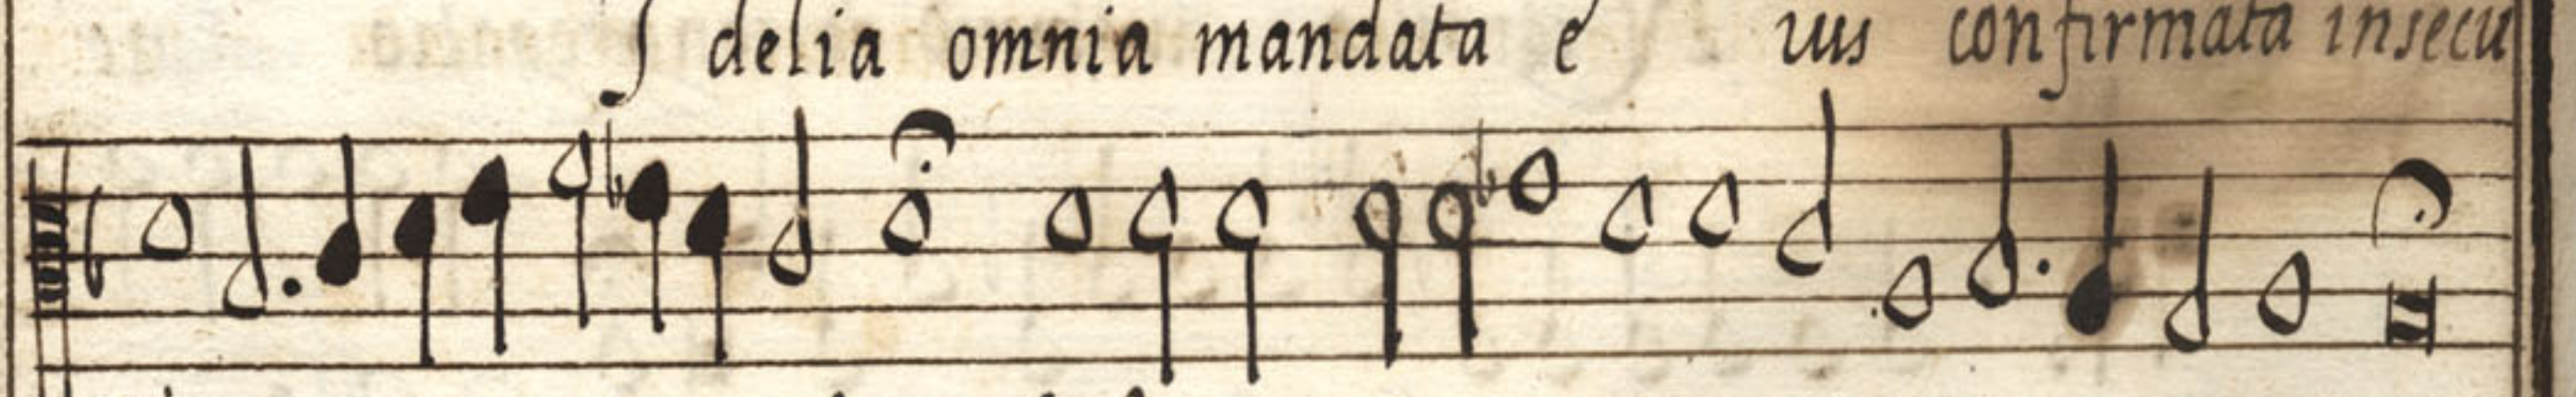 delia omnia mandata e ius confirmata insecu